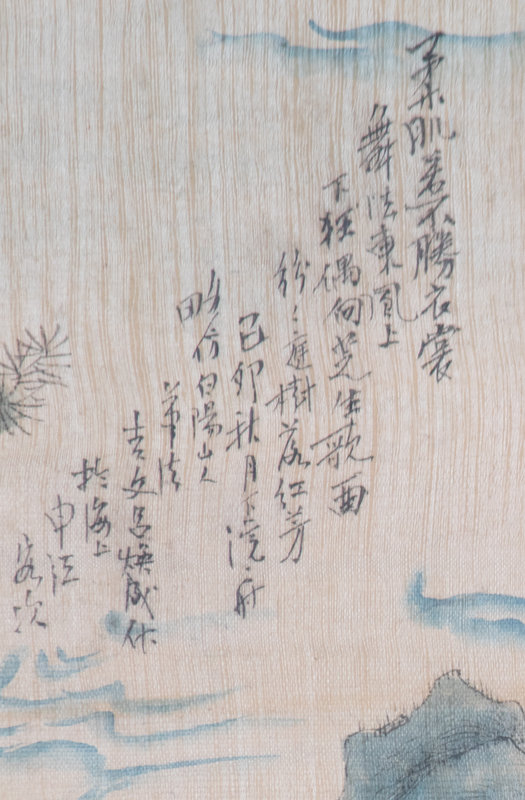 柔肌若不勝衣裳
舞法東風上
下狂偶向笙歌西
紛々庭樹落紅芳
己卯秋月上浣舟
略仿白陽山人
筆法
吉文呂煥成作
於海上
申江
客次